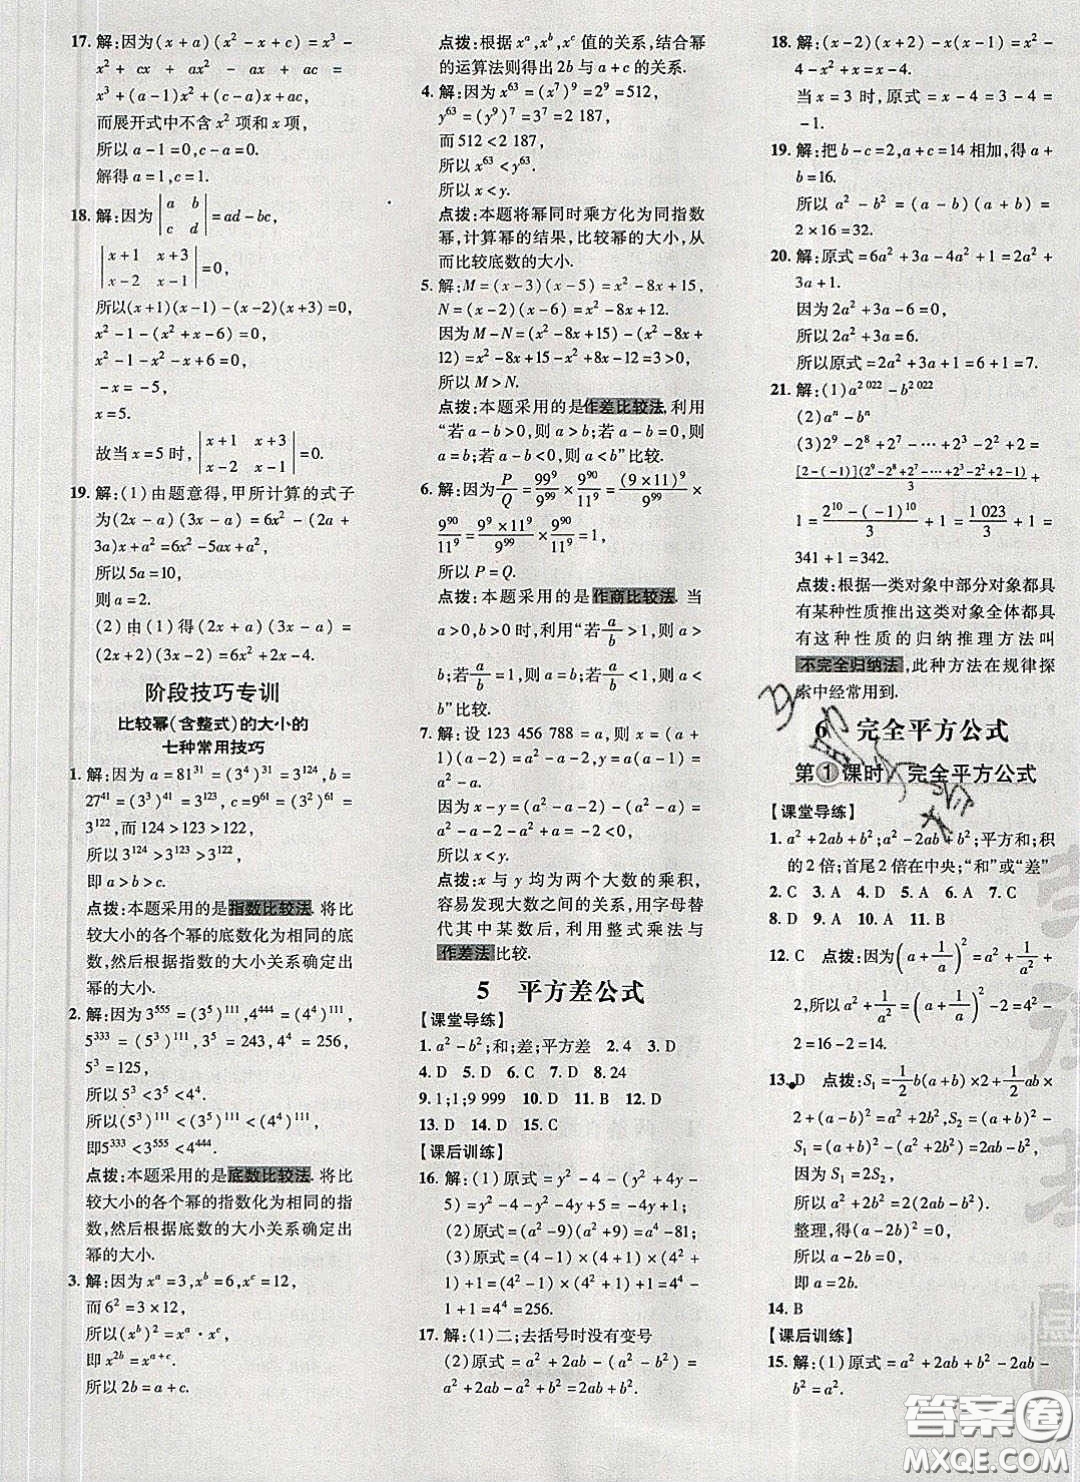 17. 解:因为(x+a)(x²-x+c)=x³-
x²+cx+ax²-ax+ac=
x³+(a-1)x²+(c-a)x+ac,
而展开式中不含 x² 项和 x 项,
所以 a-1=0,c-a=0.
解得 a=1,c=1.
18. 解:因为|a b; c d|=ad-bc,
|x+1 x+3; x-2 x-1|=0,
所以(x+1)(x-1)-(x-2)(x+3)=0,
x²-1-(x²+x-6)=0,
x²-1-x²-x+6=0,
-x=-5,
x=5.
故当 x=5 时,|x+1 x+3; x-2 x-1|=0.
19. 解:(1)由题意得,甲所计算的式子
为(2x-a)(3x-a)=6x²-(2a+
3a)x+a²=6x²-5ax+a²,
所以 5a=10,
则 a=2.
(2)由(1)得(2x+a)(3x-a)=
(2x+2)(3x-2)=6x²+2x-4.
阶段技巧专训
比较幂(含整式)的大小的
七种常用技巧
1. 解:因为 a=81³¹=(3⁴)³¹=3¹²⁴,b=
27⁴¹=(3³)⁴¹=3¹²³,c=9⁶¹=(3²)⁶¹=
3¹²²,而 124>123>122,
所以 3¹²⁴>3¹²³>3¹²²,
即 a>b>c.
点拨:本题采用的是指数比较法. 将比
较大小的各个幂的底数化为相同的底
数,然后根据指数的大小关系确定出
幂的大小.
2. 解:因为 3⁵⁵⁵=(3⁵)¹¹¹,4⁴⁴⁴=(4⁴)¹¹¹,
5³³³=(5³)¹¹¹,3⁵=243,4⁴=256,
5³=125,
所以 5³<3⁵<4⁴,
所以(5³)¹¹¹<(3⁵)¹¹¹<(4⁴)¹¹¹,
即5³³³<3⁵⁵⁵<4⁴⁴⁴.
点拨:本题采用的是底数比较法. 将比
较大小的各个幂的指数化为相同的指
数,然后根据底数的大小关系确定出
幂的大小.
3. 解:因为 xᵃ=3,xᵇ=6,xᶜ=12,
而 6²=3×12,
所以(xᵇ)²=xᵃ·xᶜ,
即 x²ᵇ=xᵃ⁺ᶜ,
所以 2b=a+c.
点拨:根据 xᵃ,xᵇ,xᶜ 值的关系,结合幂
的运算法则得出 2b 与 a+c 的关系.
4. 解:因为 x⁶³=(x⁷)⁹=2⁹=512,
y⁶³=(y⁹)⁷=3⁷=2 187,
而 512<2 187,
所以 x⁶³<y⁶³.
所以 x<y.
点拨:本题将幂同时乘方化为同指数
幂,计算幂的结果,比较幂的大小,从
而比较底数的大小.
5. 解:M=(x-3)(x-5)=x²-8x+15,
N=(x-2)(x-6)=x²-8x+12,
因为 M-N=(x²-8x+15)-(x²-8x+
12)=x²-8x+15-x²+8x-12=3>0,
所以 M>N.
点拨:本题采用的是作差比较法,利用
“若 a-b>0,则 a>b;若 a-b=0,则
a=b;若 a-b<0,则 a<b”比较.
6. 解:因为P/Q=99⁹/9⁹⁹×11⁹/9⁹⁰=(9×11)⁹/9⁹⁹×
9⁹⁰/11⁹=9⁹×11⁹/9⁹⁹×9⁹⁰/11⁹=1,
所以 P=Q.
点拨:本题采用的是作商比较法. 当
a>0,b>0 时,利用“若a/b>1,则 a>
b;若a/b=1,则 a=b;若a/b<1,则
a<b”比较.
7. 解:设 123 456 788=a,则 x=(a+
1)(a-2)=a²-a-2,y=a(a-1)=
a²-a.
因为 x-y=(a²-a-2)-(a²-a)=
a²-a-2-a²+a=-2<0,
所以 x<y.
点拨:x 与 y 均为两个大数的乘积,
容易发现大数之间的关系,用字母替
代其中某数后,利用整式乘法与
作差法比较.
5 平方差公式
【课堂导练】
1. a²-b²;和;差;平方差 2. 4 3. D
4. D 5. D 6. C 7. D 8. 24
9. 1;1;9 999 10. D 11. B 12. D
13. D 14. D 15. C
【课后训练】
16. 解:(1)原式=y²-4-(y²+4y-
5)=y²-4-y²-4y+5=-4y+1.
(2)原式=(a²-b²)(a²+b²)=a⁴-b⁴.
(3)原式=(4-1)×(4+1)×(4²+
1)+1=(4²-1)×(4²+1)+1=4⁴-
1+1=4⁴=256.
17. 解:(1)二;去括号时没有变号
(2)原式=a²+2ab-(a²-b²)=
a²+2ab-a²+b²=2ab+b².
18. 解:(x-2)(x+2)-x(x-1)=x²-
4-x²+x=x-4.
当 x=3 时,原式=x-4=3-4=
-1.
19. 解:把 b-c=2,a+c=14 相加,得 a+
b=16.
所以 a²-b²=(a-b)(a+b)=
2×16=32.
20. 解:原式=6a²+3a-4a²+1=2a²+
3a+1.
因为 2a²+3a-6=0,
所以 2a²+3a=6.
所以原式=2a²+3a+1=6+1=7.
21. 解:(1)a²⁰²²-b²⁰²²
(2)aⁿ-bⁿ
(3)2⁹-2⁸+2⁷-…+2³-2²+2=
[2-(-1)](2⁹-2⁸+2⁷-…+2³-2²+2-1)/3+
1=2¹⁰-(-1)¹⁰/3+1=1 023/3+1=
341+1=342.
点拨:根据一类对象中部分对象都具
有某种性质推出这类对象全体都具
有这种性质的归纳推理方法叫
不完全归纳法,此种方法在规律探
索中经常用到.
6 完全平方公式
第①课时 完全平方公式
【课堂导练】
1. a²+2ab+b²;a²-2ab+b²;平方和;积
的 2 倍;首尾 2 倍在中央;“和”或“差”
2. C 3. A 4. A 5. D 6. C 7. C
8. D 9. C 10. A 11. B
12. C 点拨:因为(a+1/a)²=a²+1/a²+
2,所以 a²+1/a²=(a+1/a)²-2=4²-
2=16-2=14.
13. D 点拨:S₁=1/2b(a+b)×2+1/2ab×
2+(a-b)²=a²+2b²,S₂=(a+b)²-
S₁=(a+b)²-(a²+2b²)=2ab-b²,
因为 S₁=2S₂,
所以 a²+2b²=2(2ab-b²),
整理,得(a-2b)²=0,
所以 a-2b=0,
即 a=2b.
14. B
【课后训练】
15. 解:(1)原式=a²+2ab+b²-a²-
2ab=b².
答案圈
MXQE.COM